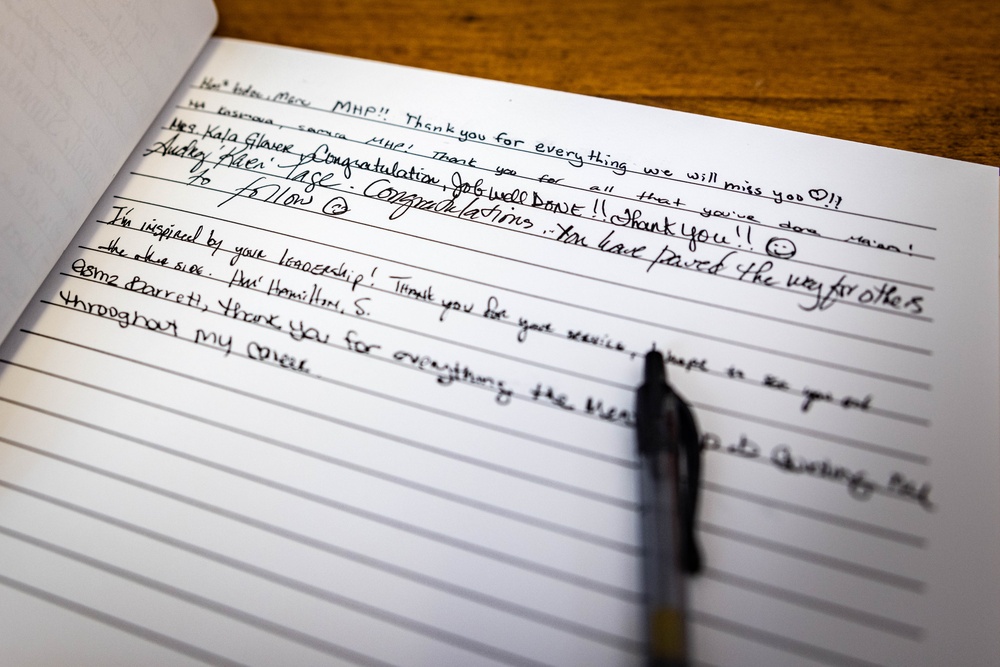 MHP!! Thank you for everything we will miss you ♡!!
MHP! Thank you for all that you've done
Mrs. Kala Glover, Congratulation, Job well DONE!! Thank You!! ☺
Audrey "Kaei" Page. Congratulations... You have paved the way for others
to follow ☺
I'm inspired by your leadership! Thank you for your service, I hope to see you out
the other side. Hamilton, S.
Barrett, thank you for everything the
throughout my career.